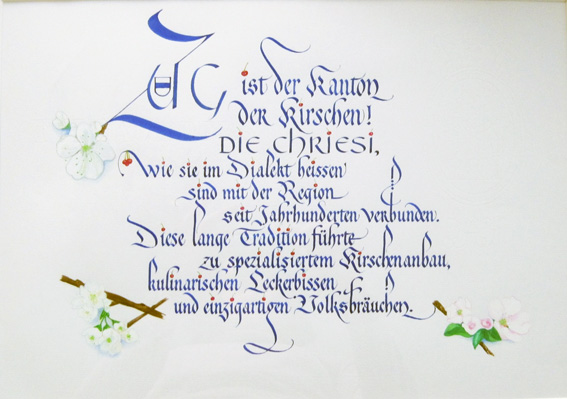 Zug ist der Kanton
der Kirschen!
DIE CHRIESI,
Wie sie im Dialekt heissen
sind mit der Region
seit Jahrhunderten verbunden.
Diese lange Tradition führte
zu spezialisiertem Kirschenanbau,
kulinarischen Leckerbissen
und einzigartigen Volksbräuchen.